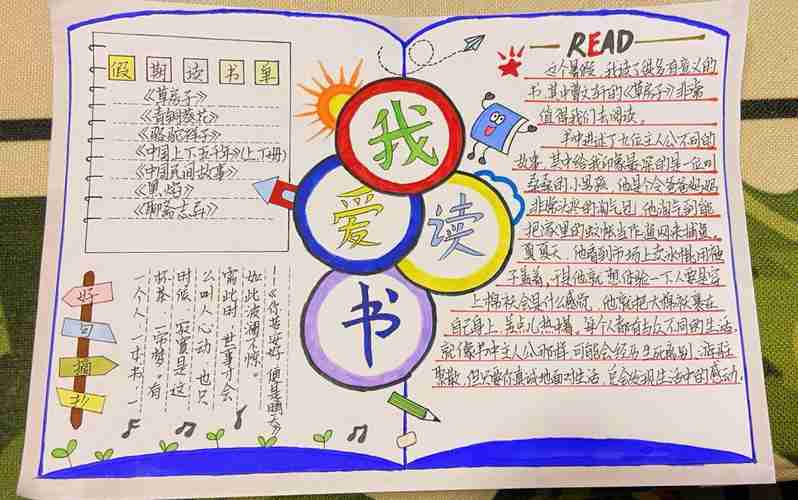 假期读书单
《草房子》
《青铜葵花》
《骆驼祥子》
《中国上下五千年》(上下册)
《中国民间故事》
《黑焰》
《聊斋志异》
好句摘抄
一个人 一本书 一
杯茶 一帘梦。有
时候 寂寞是这
么叫人心动 也只
此时 世事才会
如此波澜不惊。
——《你若安好 便是晴天》
我爱读书
READ
这个暑假,我读了很多有意义的
书,其中曹文轩的《草房子》非常
值得我们去阅读。
书中讲述了五位主人公不同的
故事,其中给我印象最深的是一位叫
桑桑的小男孩,他是个令爸爸妈妈
非常头疼的淘气包,他淘气到能
把家里的蚊帐当作渔网来捕鱼。
夏天,他看到市场上卖冰棍用被
子盖着,于是他就想体验一下人要是穿
上棉袄会是什么感觉,他就把大棉袄裹在
自己身上,差点儿热晕。每个人都有与众不同的生活,
就像书中主人公那样,可能会经历生死离别、游离
聚散,但只要你真诚地面对生活,总会发现生活中的感动.